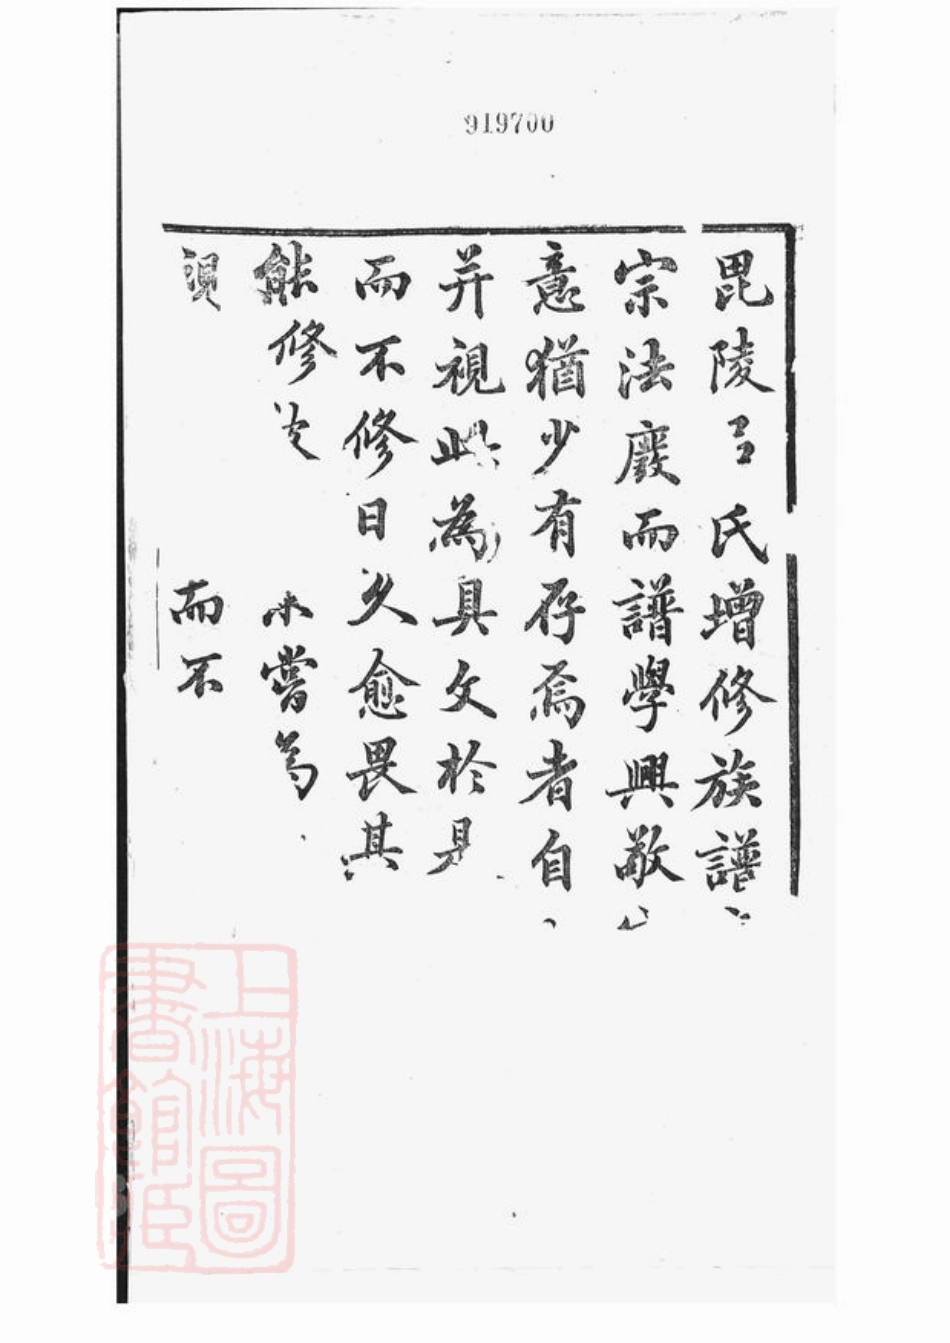 919700
毘陵呂氏增修族譜
宗法廢而譜學興敬
意猶少有存焉者自
并視此為具文於是
而不修日久愈畏其
能修 未嘗為
而不
上海圖書館藏